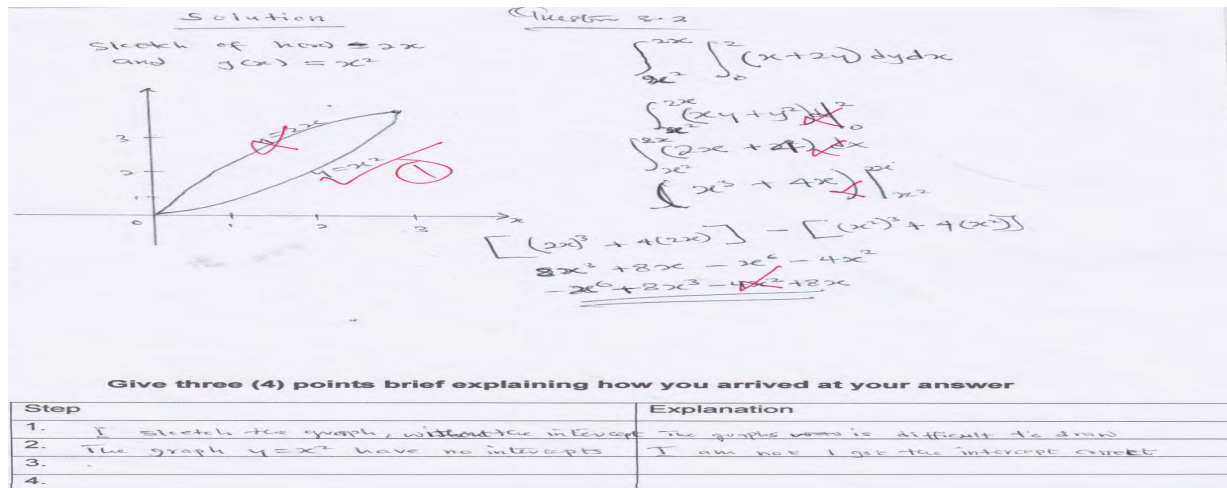 Solution
Question 3.2
Sketch of h(x) = 2x
and g(x) = x²
3
2
1
0
1
2
3
x
y = 2x
y = x²
1
∫_{x²}^{2x} ∫_0^2 (x+2y) dydx
∫_{x²}^{2x} (xy + y²) |_0^2
∫_{x²}^{2x} (2x + 4) dx
( x³ + 4x ) |_{x²}^{2x}
[(2x)³ + 4(2x)] - [(x²)³ + 4(x²)]
8x³ + 8x - x⁶ - 4x²
- x⁶ + 8x³ - 4x² + 8x
Give three (4) points brief explaining how you arrived at your answer
Step Explanation
1. I sketch the graph, without the intercept The graphs is difficult to draw
2. The graph y = x² have no intercepts I am not I got the intercept correct
3.
4.